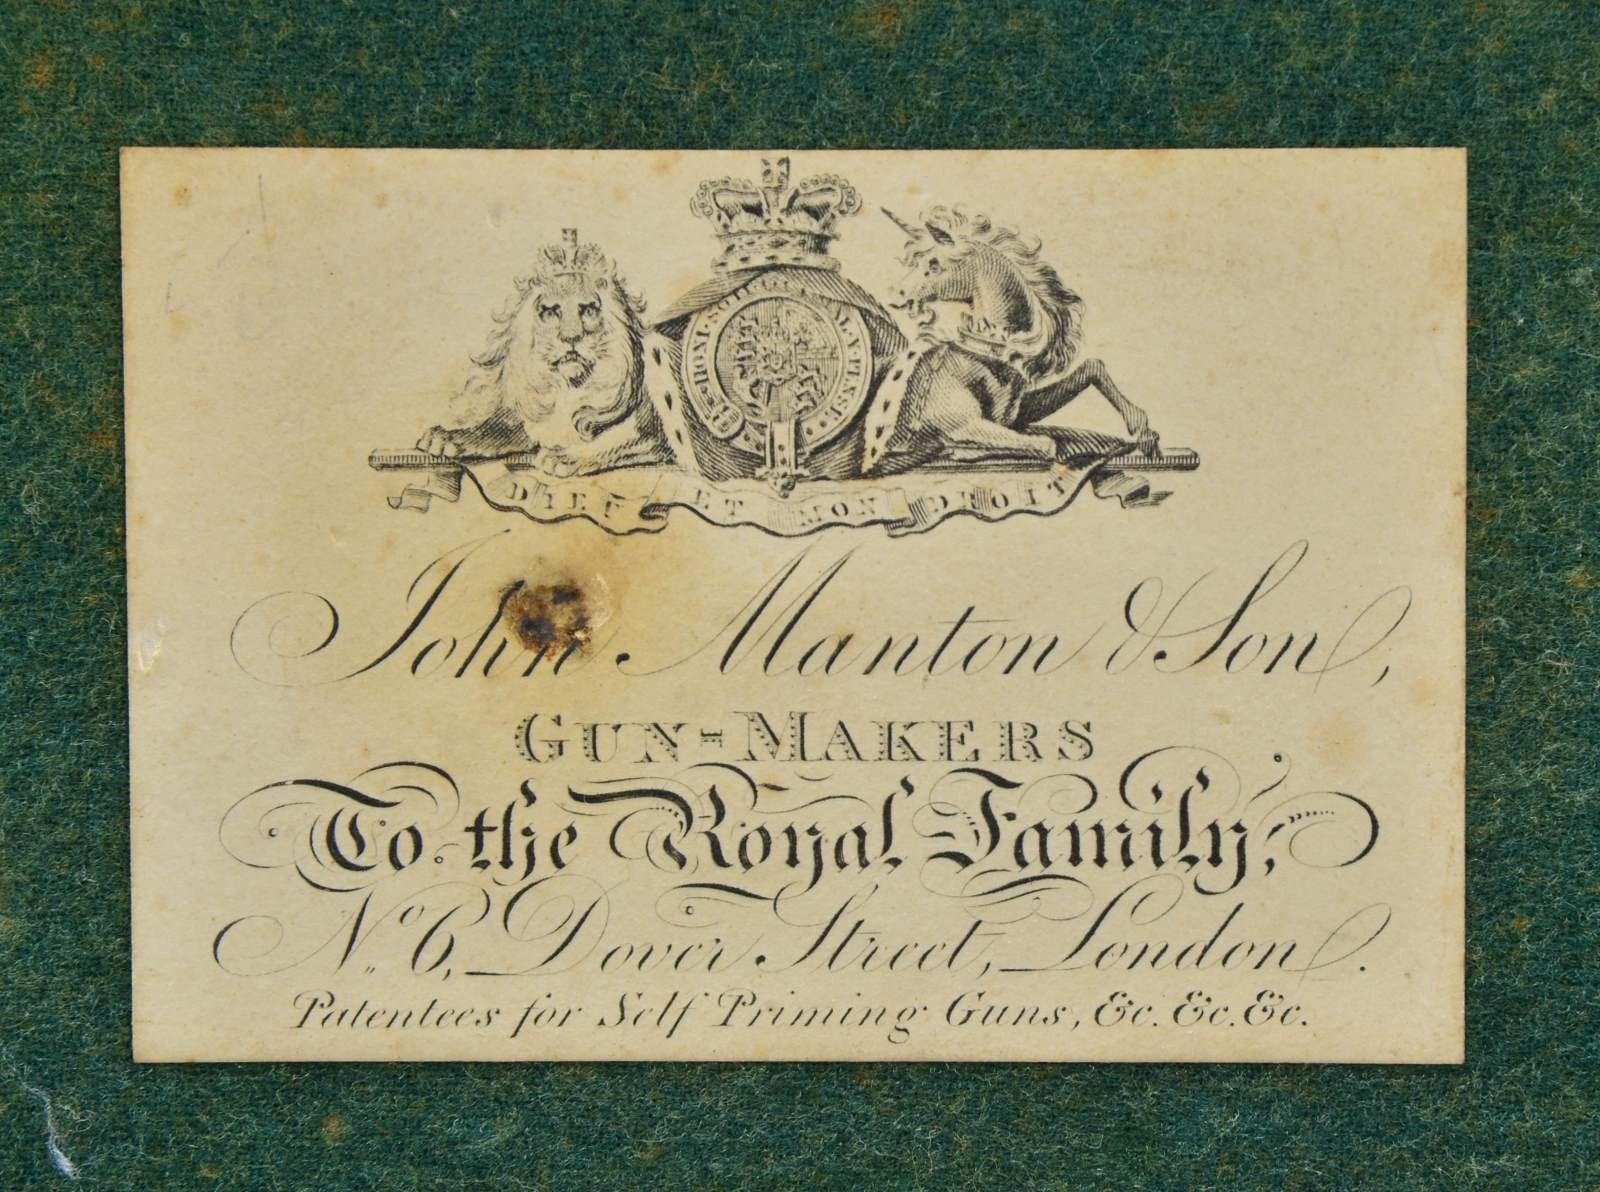 HONI · SOIT · QUI · MAL · Y · PENSE
DIEU ET MON DROIT
John Manton & Son,
GUN=MAKERS
To the Royal Family,
No. 6, Dover Street, London.
Patentees for Self Priming Guns, &c. &c. &c.